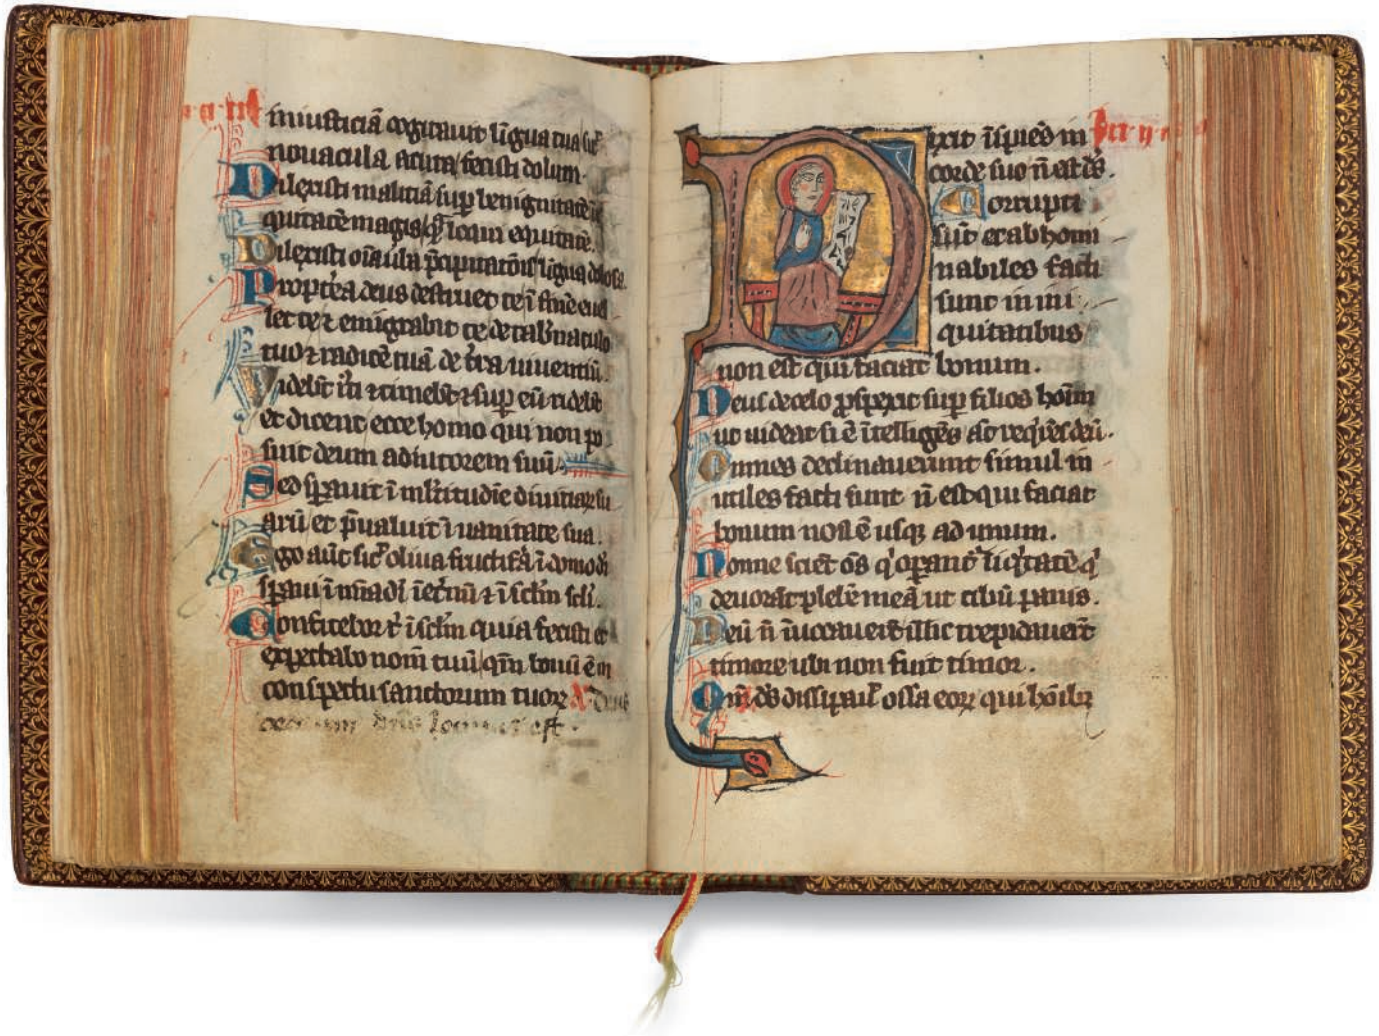 iniusticiā cogitauit līgua tua sic͛
nouacula acuta fecisti dolum.
Dilexisti malitiā sup̱ benignitatē ī
quitatē magis q̄ʒ loqui equitatē.
Dilexisti oīa uḻa p̄cipitatōis ligua dolosa.
Propterea deus destruet te ī finē euel
let te ⁊ emigrabit te de tab̾naculo
tuo ⁊ radicē tuā de t̾ra uiuentiū.
Videbūt iusti ⁊ timebūt ⁊ sup̱ eū ridebūt
et dicent ecce homo qui non po
suit deum adiutorem suū
Sed sp̱auit ī ml̾titudīe diuitiaꝝ su
arū et p̄ualuit ī uanitate sua.
Ego aūt sic͛ oliua fructif̾a ī domo di
sp̱aui ī
Confitebor t̾ ī sclm̄ quia fecisti et
expectabo nom̄ tuū qm̄ bonū ē in
conspectu sanctorum tuoꝝ
ixit īsipiēs in
corde suo n̄ est ds̄.
Corrupti
sūt et abhomi
nabiles facti
sunt in ini
quitatibus
non est qui faciat bonum.
Deus de celo ꝓspexit sup̱ filios hoīm
ut uideat si ē ītelligēs aut requirēs deū.
Omnes declinauerunt simul in
utiles facti sunt n̄ est qui faciat
bonum nō est usqʒ ad unum.
Nonne sciēt oēs qͥ op̱ant͛ īiqͥtatē qͥ
deuorāt plebē meā ut cibū panis.
Deū n̄ īuocauerūt illic trepidauerūt
timore ubi non fuit timor.
Qm̄ ds̄ dissipauit ossa eoꝝ qui hoībꝫ